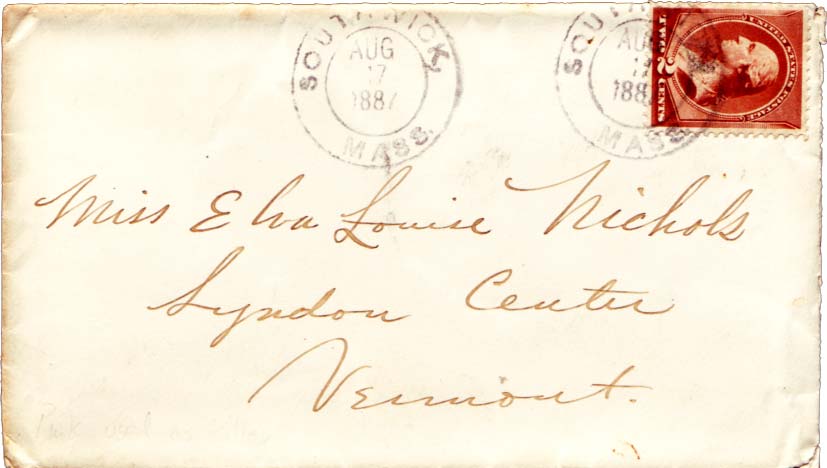 SOUTHWICK,
AUG
17
1887
MASS.
SOUTH
AUG
17
188
MASS.
UNITED STATES POSTAGE
TWO 2 CENTS
Miss Elva Louise Nichols
Lyndon Center
Vermont.